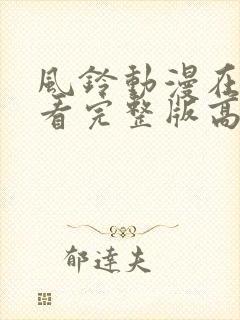 風鈴動漫在
看完整版高
郁達夫